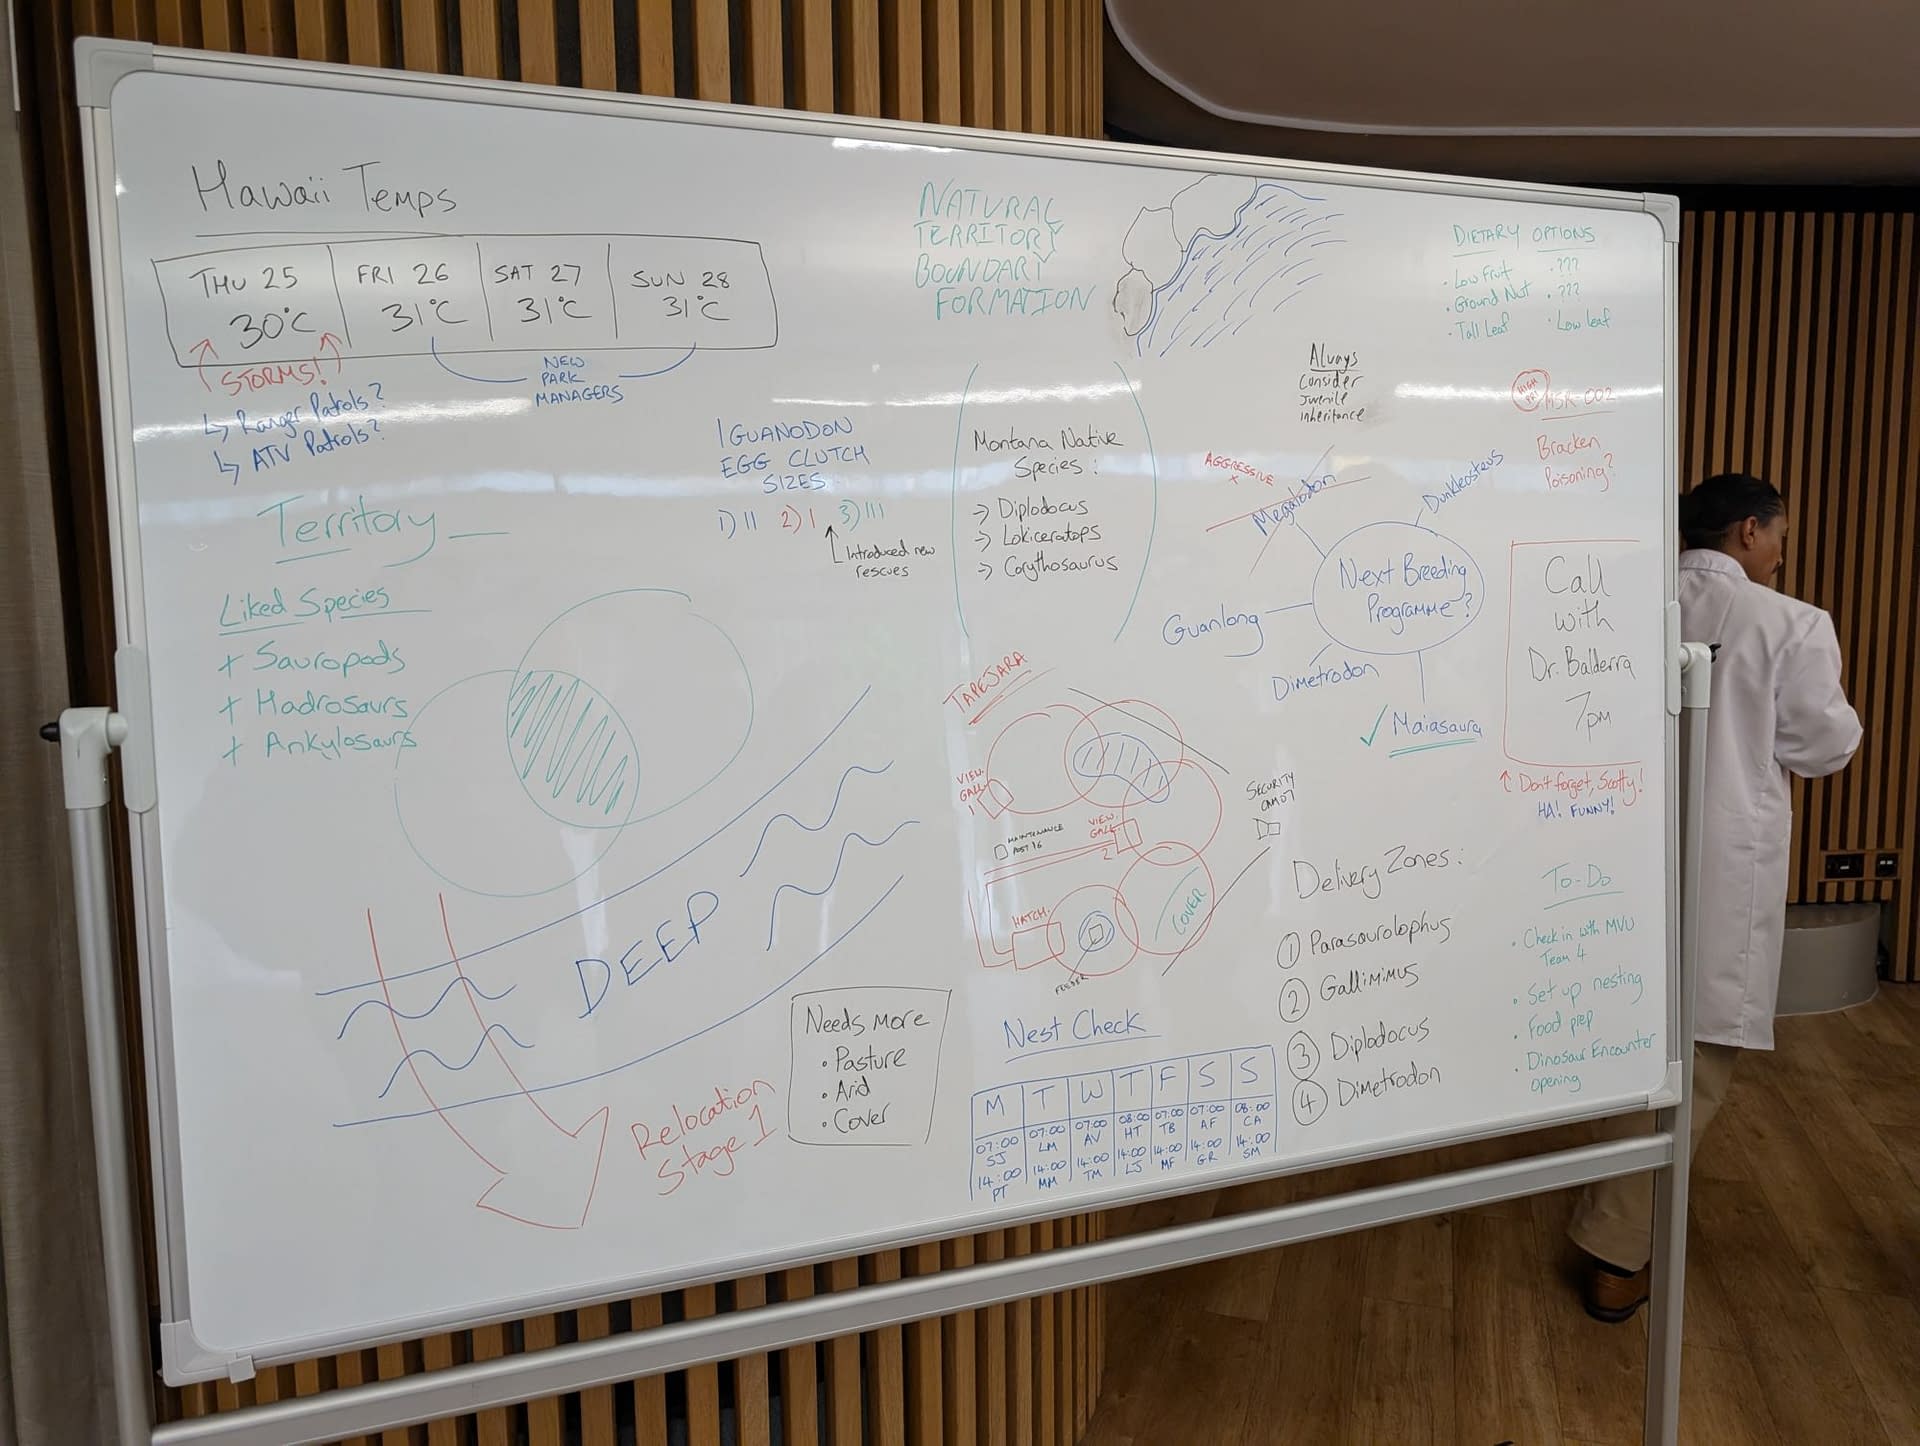 Hawaii Temps
THU 25
30°C
FRI 26
31°C
SAT 27
31°C
SUN 28
31°C
STORMS!
↳ Ranger Patrols?
↳ ATV Patrols?
NEW
PARK
MANAGERS
Territory
Liked Species
+ Sauropods
+ Hadrosaurs
+ Ankylosaurs
IGUANODON
EGG CLUTCH
SIZES
1) II 2) I 3) III
Introduced new
rescues
NATURAL
TERRITORY
BOUNDARY
FORMATION
Montana Native
Species:
→ Diplodocus
→ Lokiceratops
→ Corythosaurus
Always
Consider
Juvenile
Inheritance
DIETARY OPTIONS
· Low Fruit · ???
· Ground Nut · ???
· Tall Leaf · Low leaf
HIGH
PRI
MSR 002
Bracken
Poisoning?
AGGRESSIVE
+
Megalodon
Dunkleosteus
Next Breeding
Programme?
Guanlong
Dimetrodon
✓ Maiasaura
Call
with
Dr. Balderra
7pm
↑ Don't forget, Scotty!
HA! FUNNY!
TAPEJARA
VIEW.
GALL.
1
MAINTENANCE
POST 16
VIEW.
GALL.
2
SECURITY
CAM 07
HATCH.
FEEDER
COVER
DEEP
Relocation
Stage 1
Needs more
· Pasture
· Arid
· Cover
Nest Check
M T W T F S S
07:00 07:00 07:00 08:00 07:00 07:00 08:00
SJ LM AV HT TB AF CA
14:00 14:00 14:00 14:00 14:00 14:00 14:00
PT MM TM LJ MF GR SM
Delivery Zones:
1 Parasaurolophus
2 Gallimimus
3 Diplodocus
4 Dimetrodon
To-Do
· Check in with MVU
Team 4
· Set up nesting
· Food prep
· Dinosaur Encounter
opening